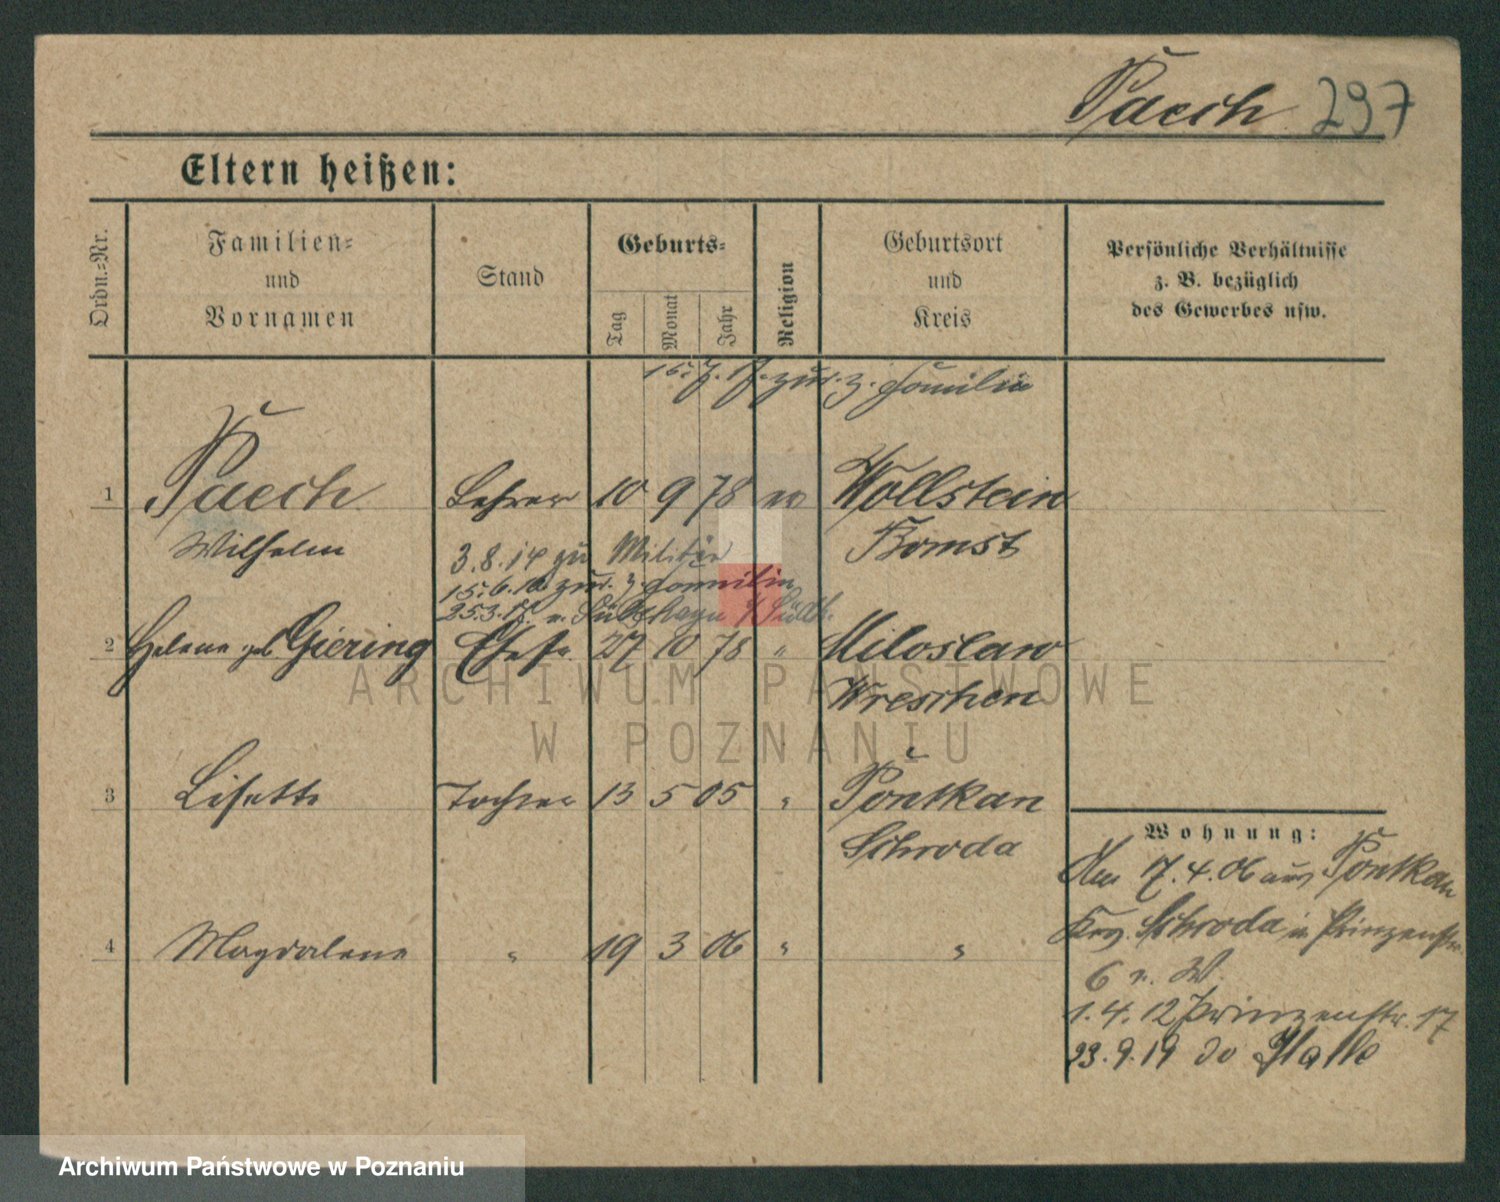 Paech 297
Eltern heißen:
Ordn.=Nr.
Familien=
und
Vornamen
Stand
Geburts=
Tag
Monat
Jahr
Religion
Geburtsort
und
Kreis
Persönliche Verhältnisse
z. B. bezüglich
des Gewerbes usw.
zur. z. Familie
1 Paech Lehrer 10 9 78 ev Wollstein
Wilhelm Bomst
3.8.14 zu Militär
zur. z. Familie
2 Helene geb Giering Ehefr. 27 10 78 " Miloslaw
Wreschen
3 Lisette Tochter 13 5 05 " Pontkau
Schroda
4 Magdalene " 19 3 06 " "
Wohnung:
17.4.06 aus Pontkau
Schroda in Prinzenstr.
6 v. W.
1.4.12 Prinzenstr. 17
23.9.19 Halle
ARCHIWUM PAŃSTWOWE
W POZNANIU
Archiwum Państwowe w Poznaniu